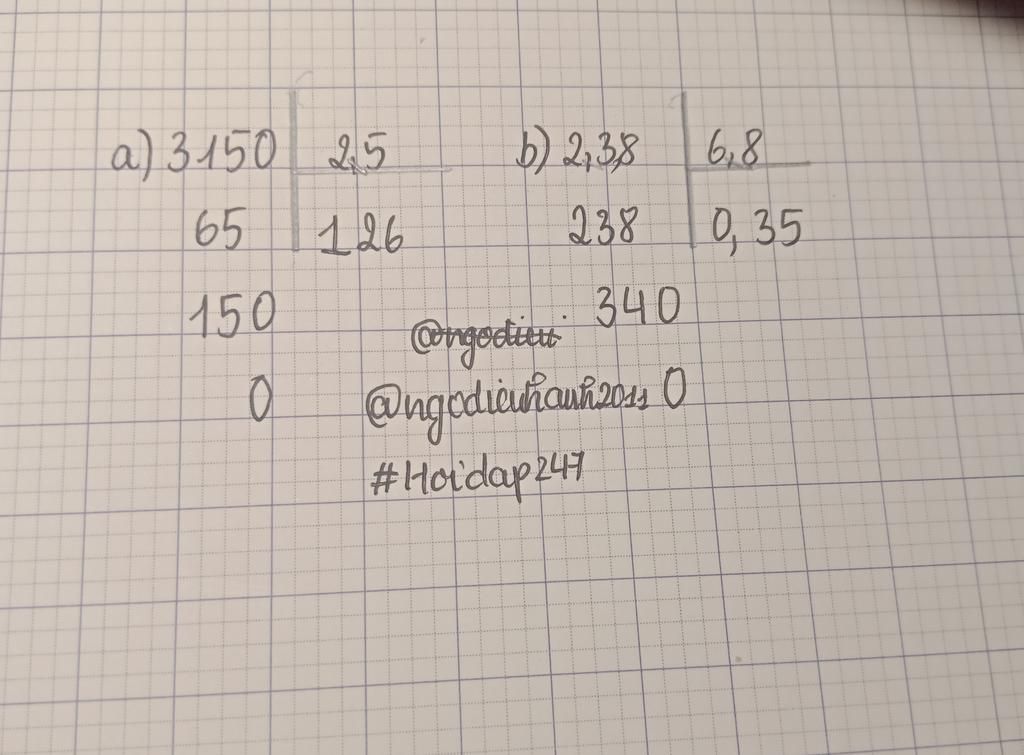 a) 3150 2,5 b) 2,3,8 6,8
65 126 238 0,35
150 340
0 0
#Hoidap247